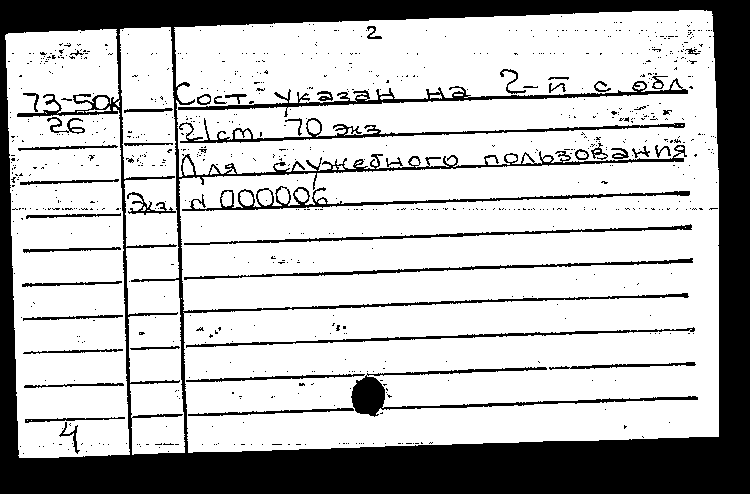 2
73-50к Сост. указан на 2-й с. обл.
26 21 ст. 70 экз.
Для служебного пользования.
Экз. № 000006.
4